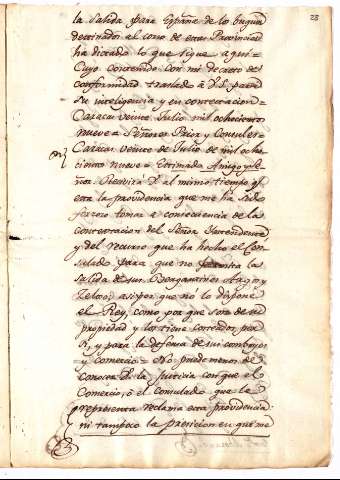 28
la Salida para España de los buques
destinados al corso de estas Provincias
ha dictado lo que sigue aqui=
Cuyo contenido con mi decreto de
conformidad traslado à V.S. para
su inteligencia y en contextacion=
Caracas veinte Julio mil ochocientos
nueve = Señores Prior y Consules=
Caracas veinte de Julio de mil ocho
cientos nueve = Estimado Amigo y Se
ñor. Recivirá V. al mismo tiempo qe
esta la providencia que me ha sido
forzoso tomar à consecuencia de la
contextacion del Señor Yntendente
y del recurso que ha hecho el Con
sulado para que no la
salida de sus Bergantines Argos y
Zeloso, asi por que no lo dispone
el Rey, como por que son de su
propiedad y los tiene costeados por
si, y para la defensa de sus comboyes
y comercio = No puede menos de
conocer V. la justicia con que el
Comercio, ó el Consulado que la
representa reclama esta providencia
ni tampoco la precicion en que me